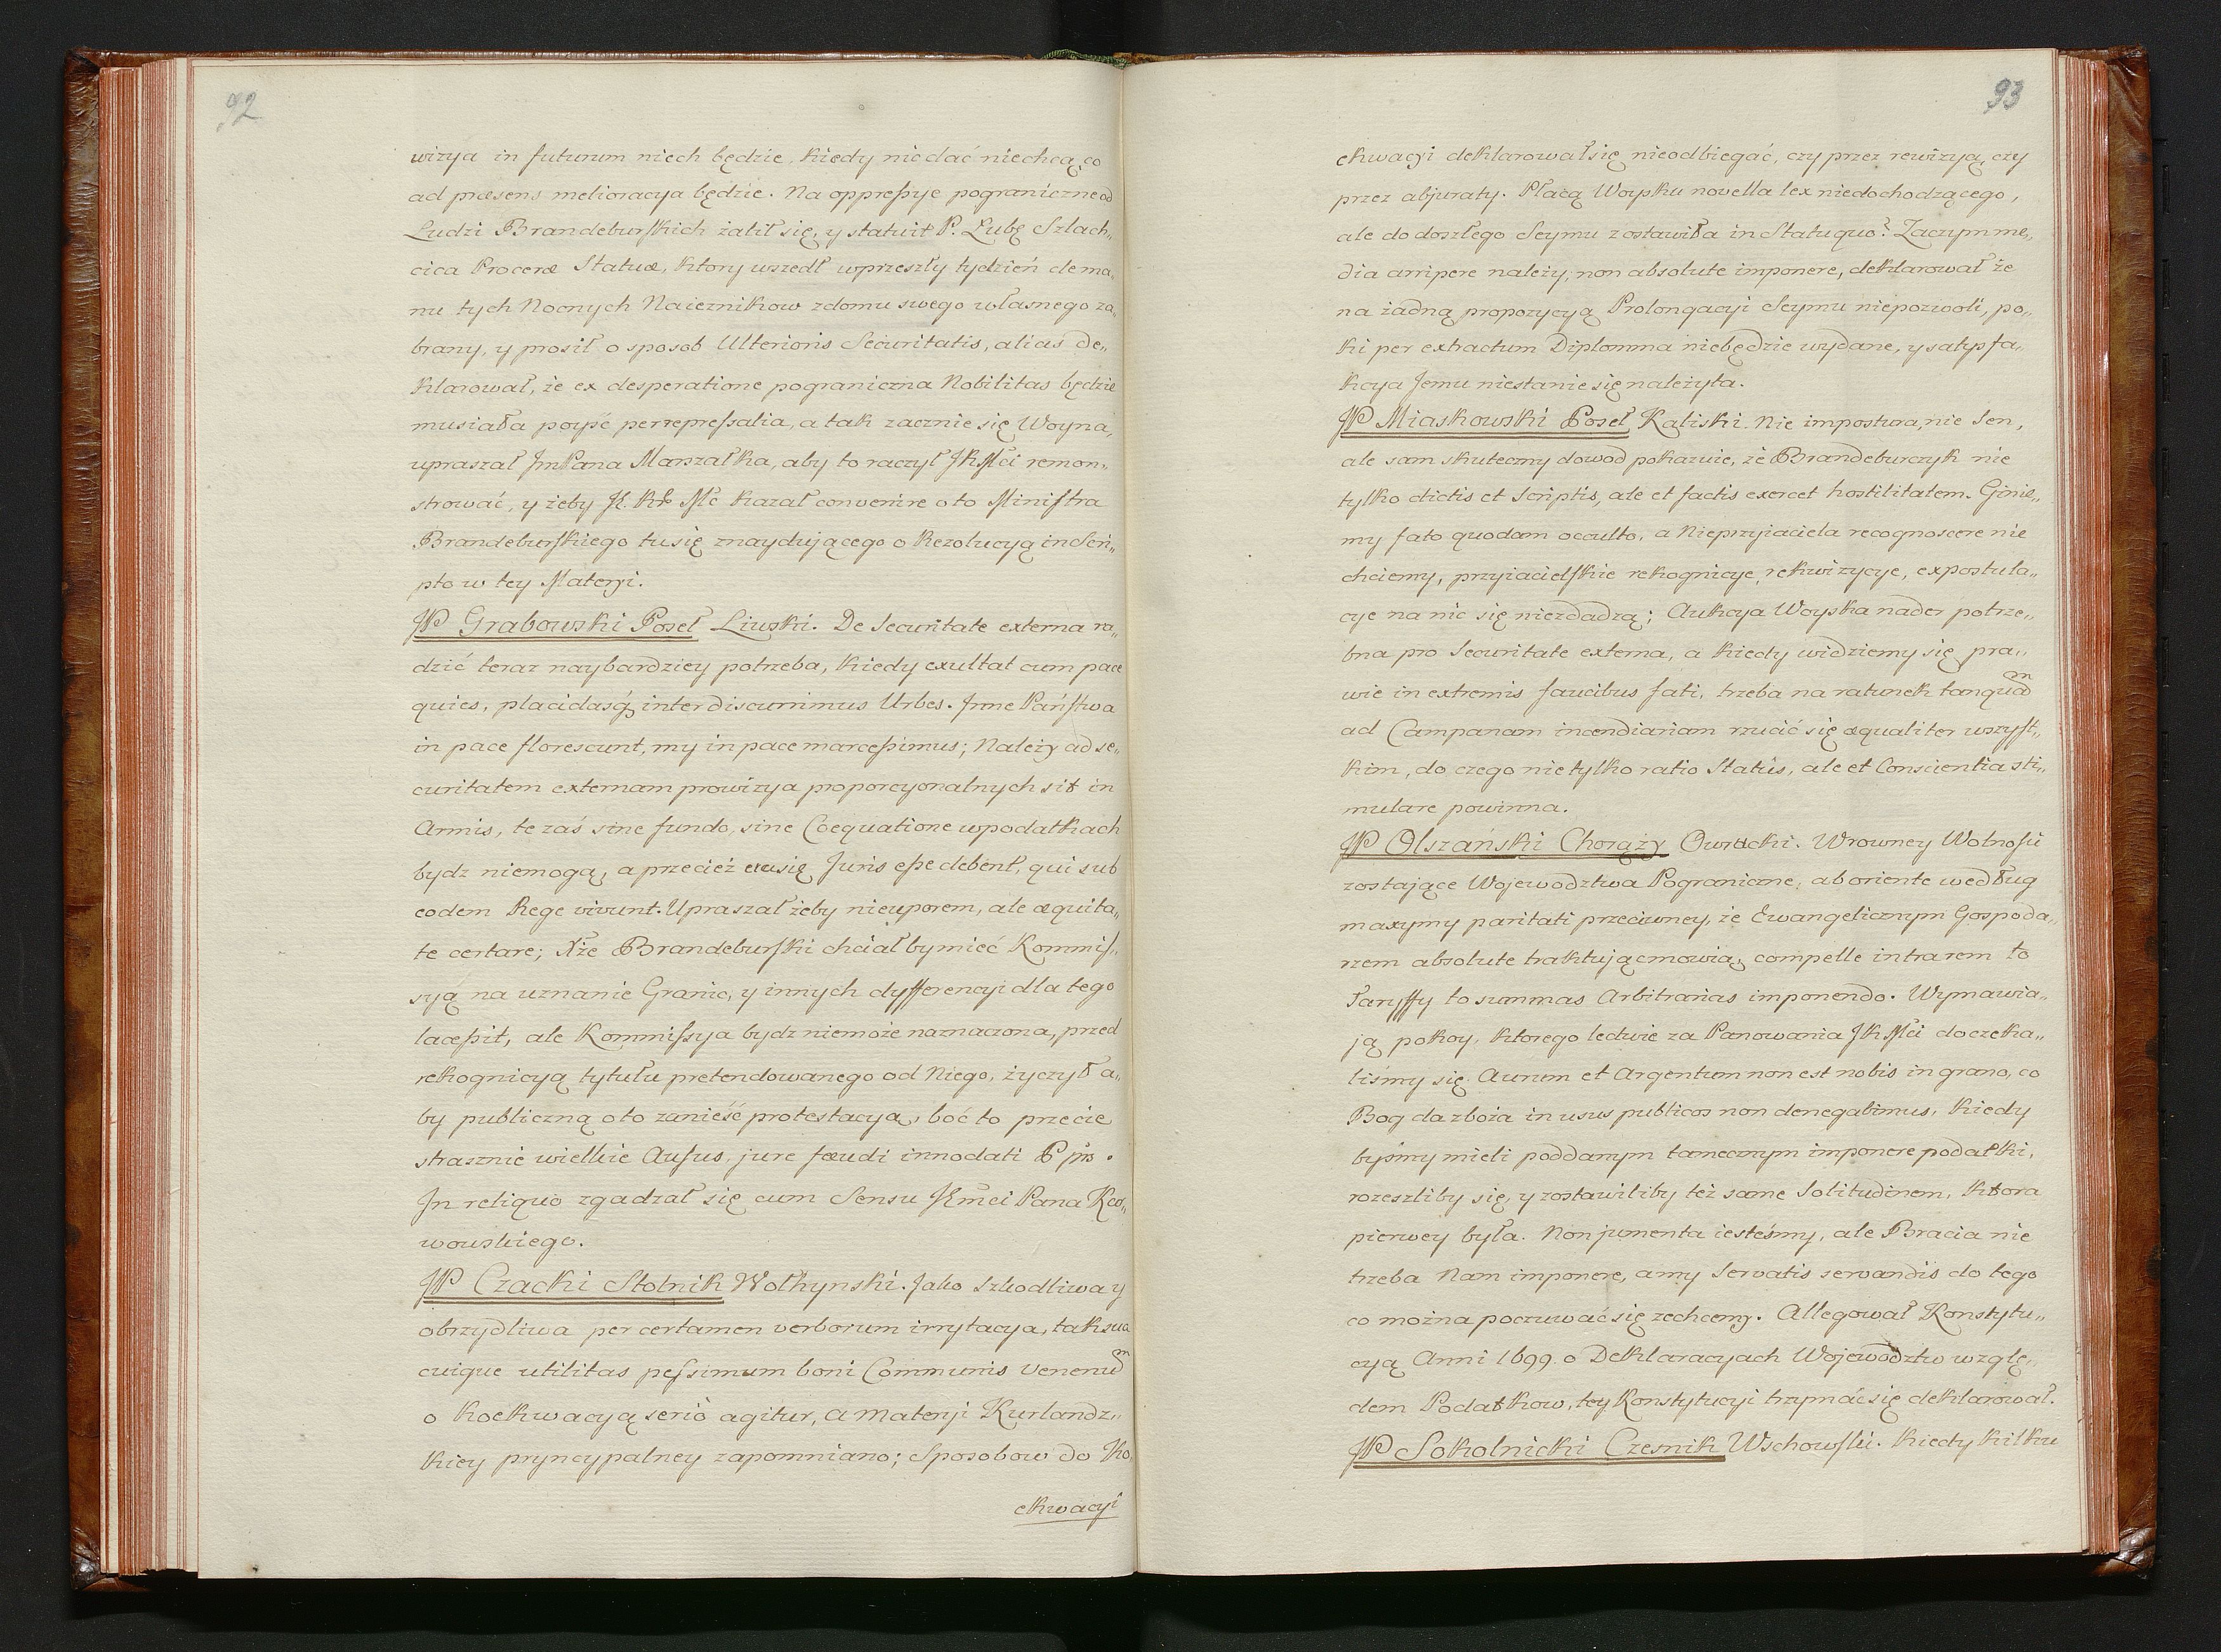 92
wizya in futurum niech będzie, kiedy nic dać niechcą, co
ad præsens melioracya będzie. Na oppressye pograniczne od
Ludzi Brandeburskich żalił się, y statuit P. Łubę Szlach„
cica Proceræ Staturæ, ktory uszedł w przeszły tydzień de ma„
nu tych Nocnych Naiezników z domu swego własnego za„
brany, y prosił o sposob Ulterioris Securitatis, alias de„
klarował, że ex desperatione pograniczna Nobilitas będzie
musiała poyść per repressalia, a tak zacznie się Woyna,
upraszał JmPana Marszałka, aby to raczył JKMci remon„
strować, y żeby JKMć kazał convenire o to Ministra
Brandeburskiego tu się znaydującego o Rezolucyą in Scri„
pto w tey Materyi.
JP Grabowski Poseł Liwski. De Securitate externa ra„
dzić teraz naybardziey potrzeba, kiedy exultat cum pace
quies, placidasq; inter discurrimus Urbes. Jnne Państwa
in pace florescunt, my in pace marcessimus; Należy ad se„
curitatem externam prowizya proporcyonalnych sił in
Armis, te zaś sine fundo, sine Coequatione w podatkach
bydz niemogą, a przecież Juris esse debent, qui sub
eodem Rege vivunt. Upraszał żeby nie uporem, ale æquita„
te certare; Xże Brandeburski chciałby mieć Kommis„
syą na uznanie Granic, y innych dyfferencyi dla tego
lacessit, ale Kommissya bydz niemoże naznaczona, przed
rekognicyą tytułu pretendowanego od Niego, życzył a„
by publiczną o to zanieść protestacyą, boć to przecie
strasznie wielkie Ausus, jure fœudi innodati
Jn reliquo zgadzał się cum Sensu JEmci Pana
wowskiego.
JP Czacki Stolnik Wołhynski. Jako Szkodliwa y
obrzydliwa per certamen verborum irrytacya, tak sua
cuique utilitas pessimum boni Communis venenum
o koekwacyą serio agitur, a Materyi Kurlandz„
kiey pryncypalney zapomniano; Sposobow do Ko
ekwacyi
93
ekwacyi deklarował się nieodbiegać, czy przez rewizyą, czy
przez abjuraty. Płacą Woysku novella lex niedochodzącego,
ale do doszłego Seymu zostawiła in Statu quo? Zaczym me„
dia arripere należy, non absolute imponere, deklarował że
na żadną propozycyą Prolongacyi Seymu niepozwoli, po„
ki per extractum Diplomma niebędzie wydane, y satysfa„
kcya Jemu niestanie się należyta.
JP Miaskowski Poseł Kaliski. Nie impostura, nie Sen,
ale sam skuteczny dowod pokazuie, że Brandeburczyk nie
tylko dictis et Scriptis, ale et factis exercet hostilitatem. Ginie„
my fato quodam occulto, a Nieprzyjaciela recognoscere nie
chcemy, przyiacielskie rekognicye, rekwizycye, expostula„
cye na nic się niezdadzą; Aukcya Woyska nader potrze„
bna pro Securitate externa, a kiedy widziemy się pra„
wie in extremis faucibus fati, trzeba na ratunek tanquam
ad Campanam incendiariam rzucić się æqualiter wszyst„
kim, do czego nie tylko ratio Status, ale et Conscientia sti„
mulare powinna.
JP Olszański Chorąży Owrucki. W rowney Wolności
zostające Wojewodztwa Pograniczne, ab oriente według
maxymy paritati przeciwney, że Ewangelicznym Gospoda„
rzem absolute traktując mowią, compelle intrarem to
Taryffy to summas Arbitrarias imponendo. Wymawia„
ją pokoy, ktorego ledwie za Panowania JKMci doczeka„
liśmy się. Aurum et Argentum non est nobis in grano, co
Bog da zboża in usus publicos non denegabimus, kiedy
byśmy mieli poddanym tamecznym imponere podatki,
rozeszliby się, y zostawiliby też same Solitudinem, ktora
pierwey była. Non jumenta iesteśmy, ale Bracia nie
trzeba Nam imponere, a my Servatis servandis do tego
co można poczuwać się zechcemy. Allegował Konstytu„
cyą Anni 1699. o Deklaracyach Wojewodztw wzglę„
dem Podatkow, tey Konstytucyi trzymać się deklarował.
JP Sokolnicki Czesnik Wschowski. Kiedy kilku